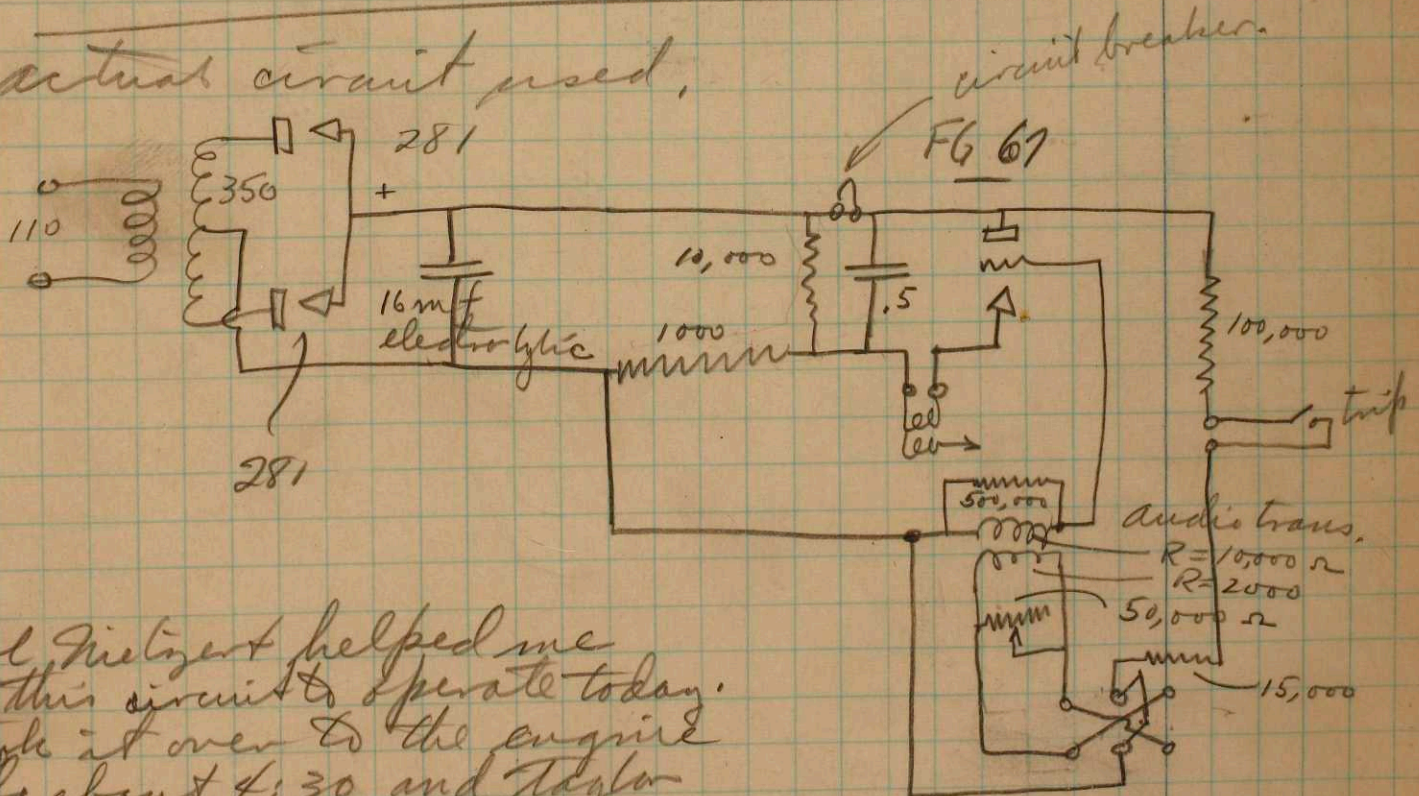 actual circuit used,
circuit breaker.
281
FG 67
350
+
110
10,000
16 mf
electrolytic
.5
1000
100,000
trip
281
500,000
audio trans.
R = 10,000 Ω
R = 2000
50,000 Ω
15,000
helped me
this circuit to operate today.
it over to the engine
about 4:30 and Taylor